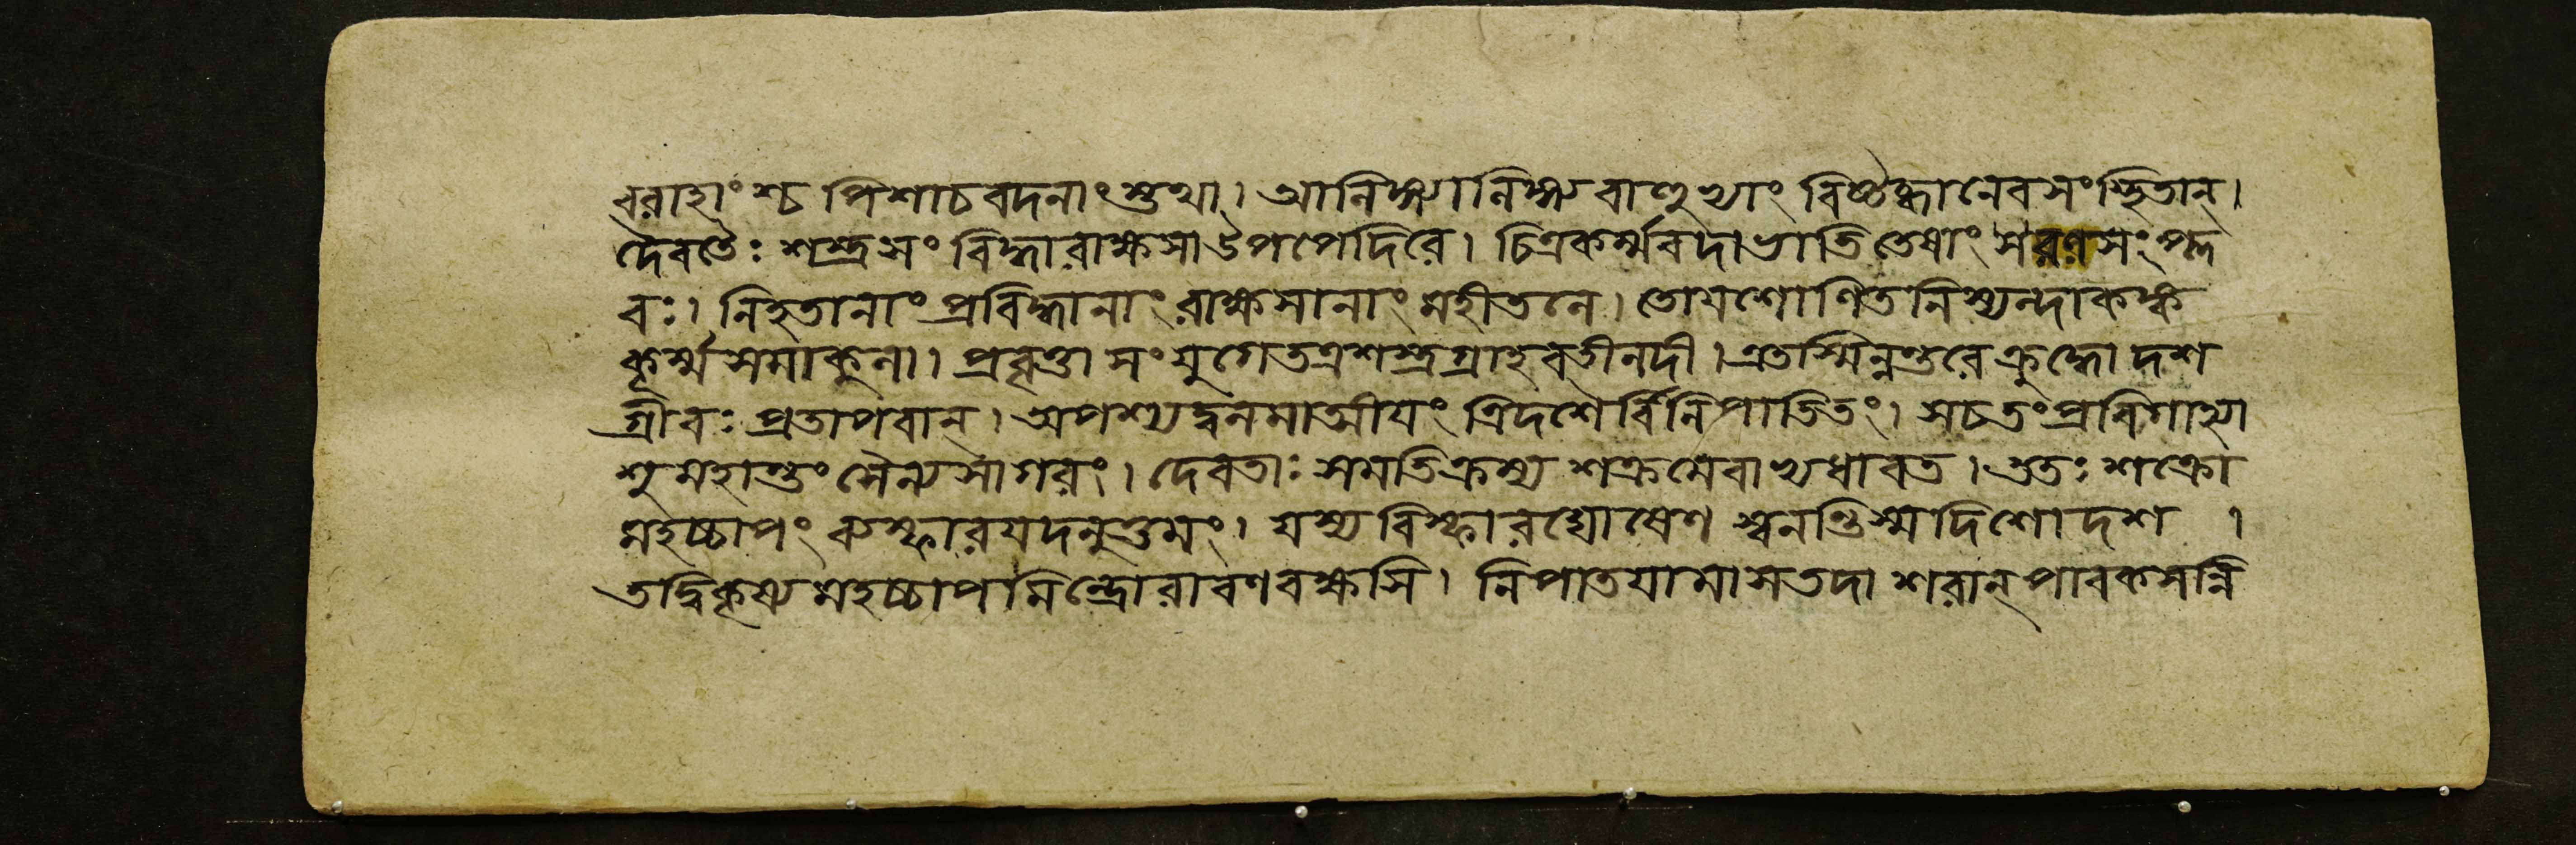 বরাহাংশ্চ পিশাচবদনাংস্তথা। আলিঙ্গ্যালিঙ্গ্য বাহুভ্যাং বিষ্টব্ধানেবসংস্থিতান্।
দৈবতৈঃ শস্ত্রসংবিদ্ধা রাক্ষসা উপপেদিরে। চিত্রকর্ম্মবদাভাতি তেষাং স রণসংপ্ল
বঃ। নিহতানাং প্রবিদ্ধানাং রাক্ষসানাং মহীতলে। তোয়শোণিতনিস্যন্দা কঙ্ক
কূর্ম্মসমাকুলা। প্রবৃত্তা সংযুগে তত্র শস্ত্রগ্রাহবতী নদী। এতস্মিন্নন্তরে ক্রুদ্ধো দশ
গ্রীবঃ প্রতাপবান্। অপশ্যদ্বলমাত্মীয়ং ত্রিদশৈর্বিনিপাতিতং। স চ তং প্রবিগাহ্যা
শু মহান্তং সৈন্যসাগরং। দেবতাঃ সমতিক্রম্য শক্রমেবাভ্যধাবত। ততঃ শক্রো
মহচ্চাপং ব্যস্ফারয়দনুত্তমং। যস্য বিস্ফারঘোষেণ স্বনন্তি স্ম দিশো দশ ।
তদ্বিকৃষ্য মহচ্চাপমিন্দ্রো রাবণবক্ষসি। নিপাতয়ামাস তদা শরান্ পাবকসন্নি